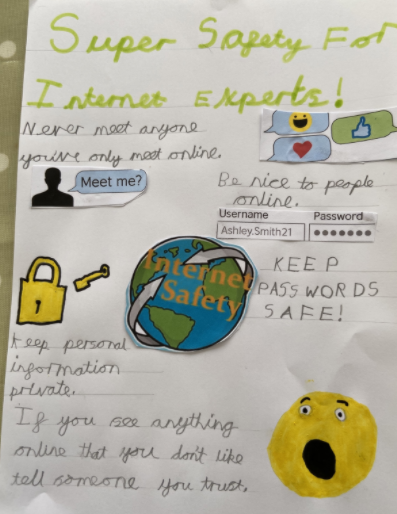 Super Safety For
Internet Experts!
Never meet anyone
you've only meet online.
Meet me?
Be nice to people
online.
Username Password
Ashley.Smith21 ●●●●●●●
Internet
Safety
KEEP
PASSWORDS
SAFE!
Keep personal
information
private.
If you see anything
online that you don't like
tell someone you trust.